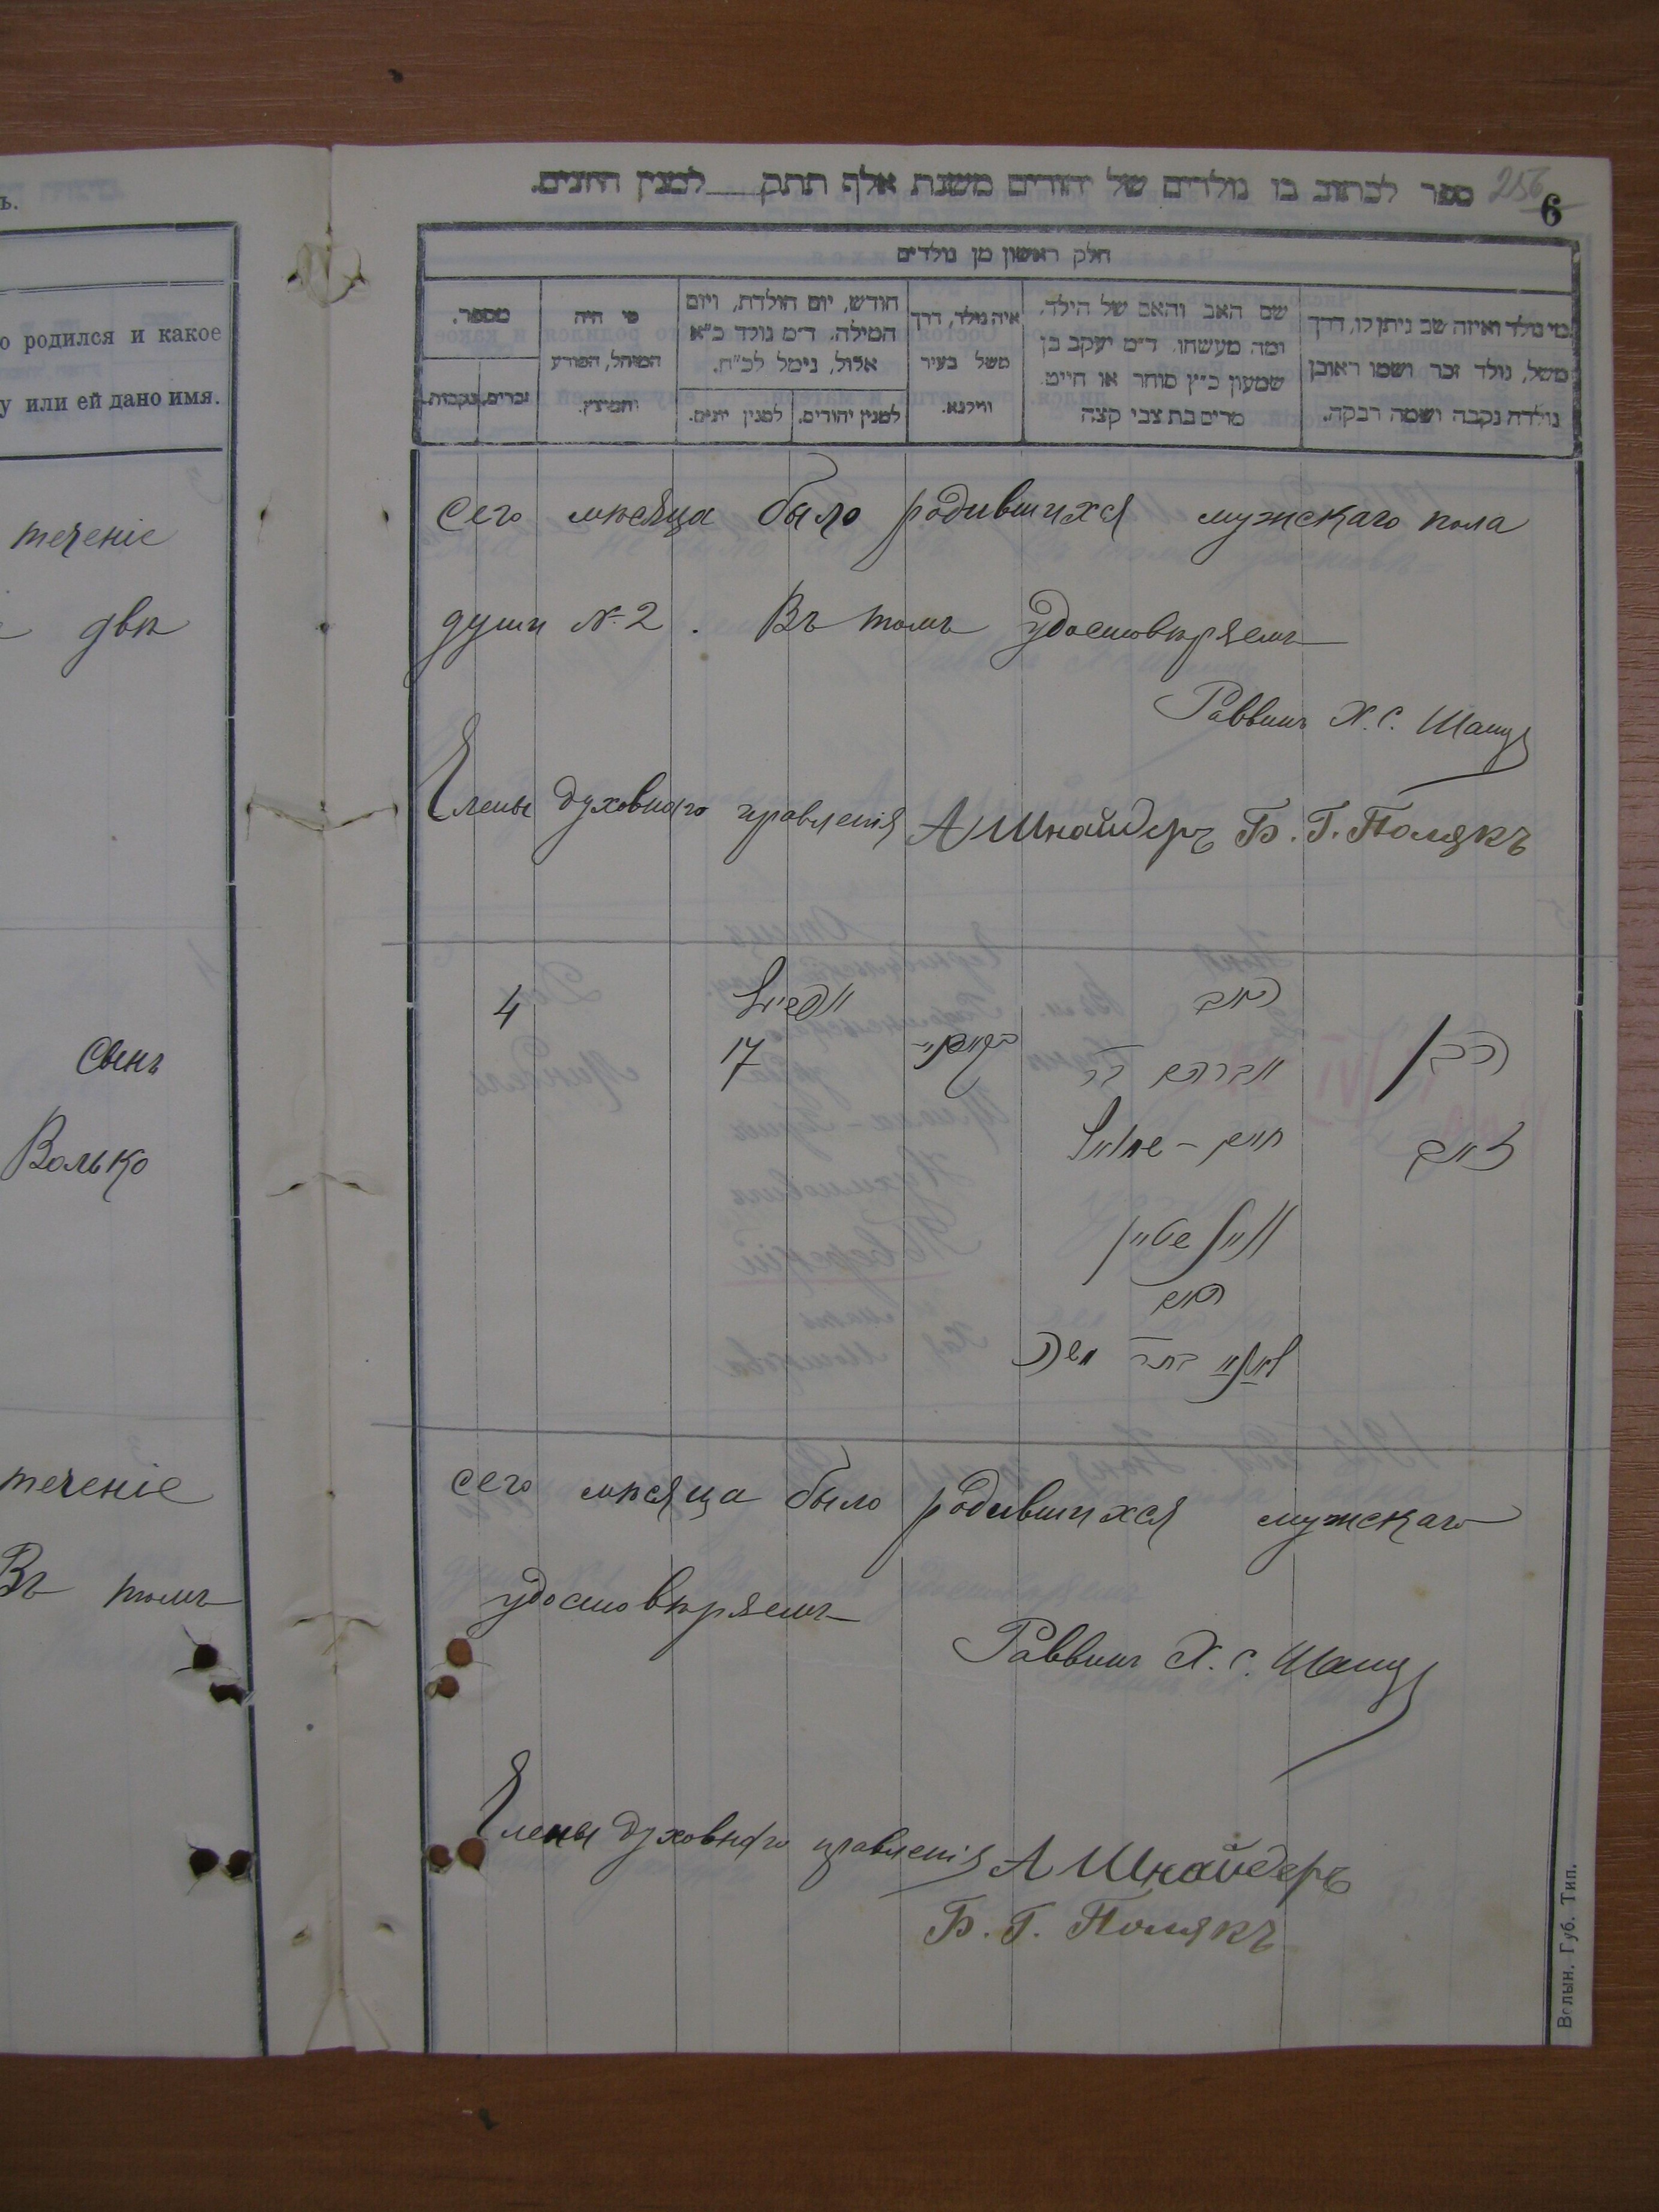 ъ.
о родился и какое
у или ей дано имя.
теченіе
двѣ
Сынъ
Волько
теченіе
Въ томъ
256
6
ספר לכתוב בו נולדים של יהודים משנת אלף תתק למנין היונים.
חלק ראשון מן נולדים
מי נולד ואיזה שב ניתן לו, דרך
משל, נולד זכר ושמו ראובן
נולדה נקבה ושמה רבקה.
שם האב והאם של הילד,
ומה מעשהו. ד״מ יעקב בן
שמעון כ״ץ סוחר או חייט
מרים בת צבי קצה
איה נולד, דרך
משל בעיר
ווילנא.
חודש, יום הולדת, ויום
המילה. ד״מ נולד כ״א
אלול, נימל לכ״ח.
למנין יהודים.
למנין יונים.
מי היה
המוהל, הפורע
והמוצץ.
מספר.
זכרים.
נקבות.
сего мѣсяца было родившихся мужскаго пола
души № 2. Въ томъ удостовѣряемъ
Раввинъ Х. С.
Члены духовнаго правленія А Шнайдеръ Б. Г. Полякъ
4
אפריל
17
האב
אברהם בר
חיים - שמואל
האם
בן
זאב
сего мѣсяца было родившихся мужскаго
удостовѣряемъ
Раввинъ Х. С.
Члены духовнаго правленія А Шнайдеръ
Б. Г. Полякъ
Волын. Губ. Тип.